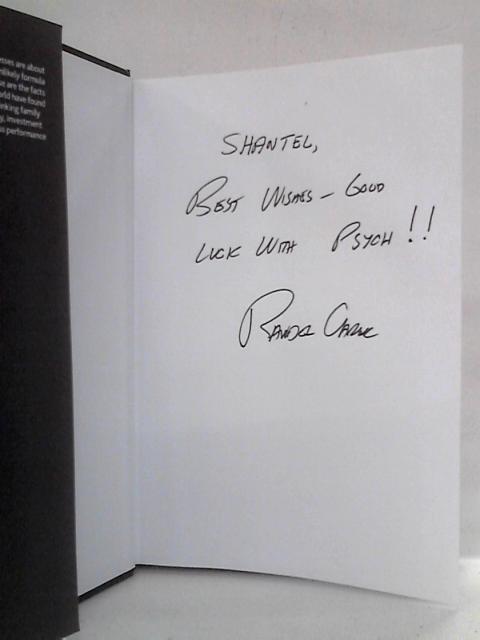 esses are about
nlikely formula
at are the facts
orld have found
inking family
y, investment
ss performance
SHANTEL,
BEST WISHES – GOOD
LUCK WITH PSYCH!!